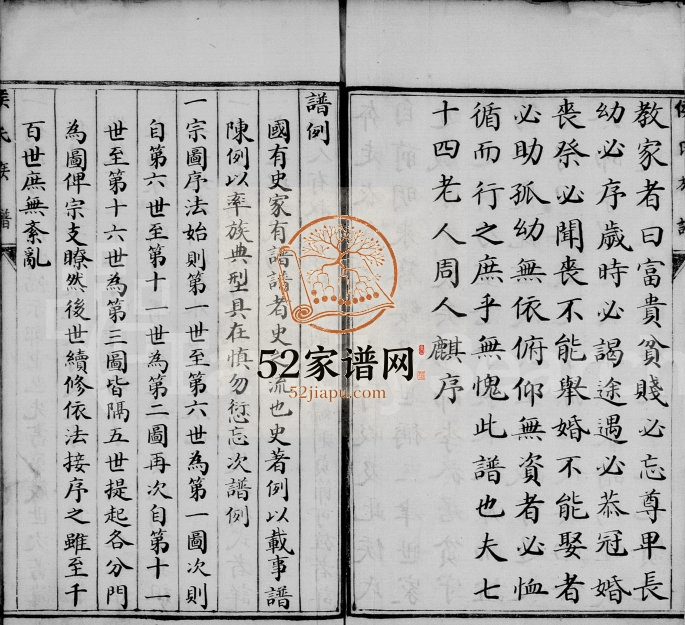 教家者曰富貴貧賤必忘尊卑長
幼必序歲時必謁途遇必恭冠婚
喪祭必聞喪不能舉婚不能娶者
必助孤幼無依俯仰無資者必恤
循而行之庶乎無愧此譜也夫七
十四老人周人麒序
譜例
國有史家有譜譜者史流也史著例以載事譜
陳例以率族典型具在慎勿愆忘次譜例
一宗圖序法始則第一世至第六世為第一圖次則
自第六世至第十一世為第二圖再次自第十一
世至第十六世為第三圖皆隔五世提起各分門
為圖俾宗支瞭然後世續修依法接序之雖至千
百世庶無紊亂
52家谱网
52jiapu.com